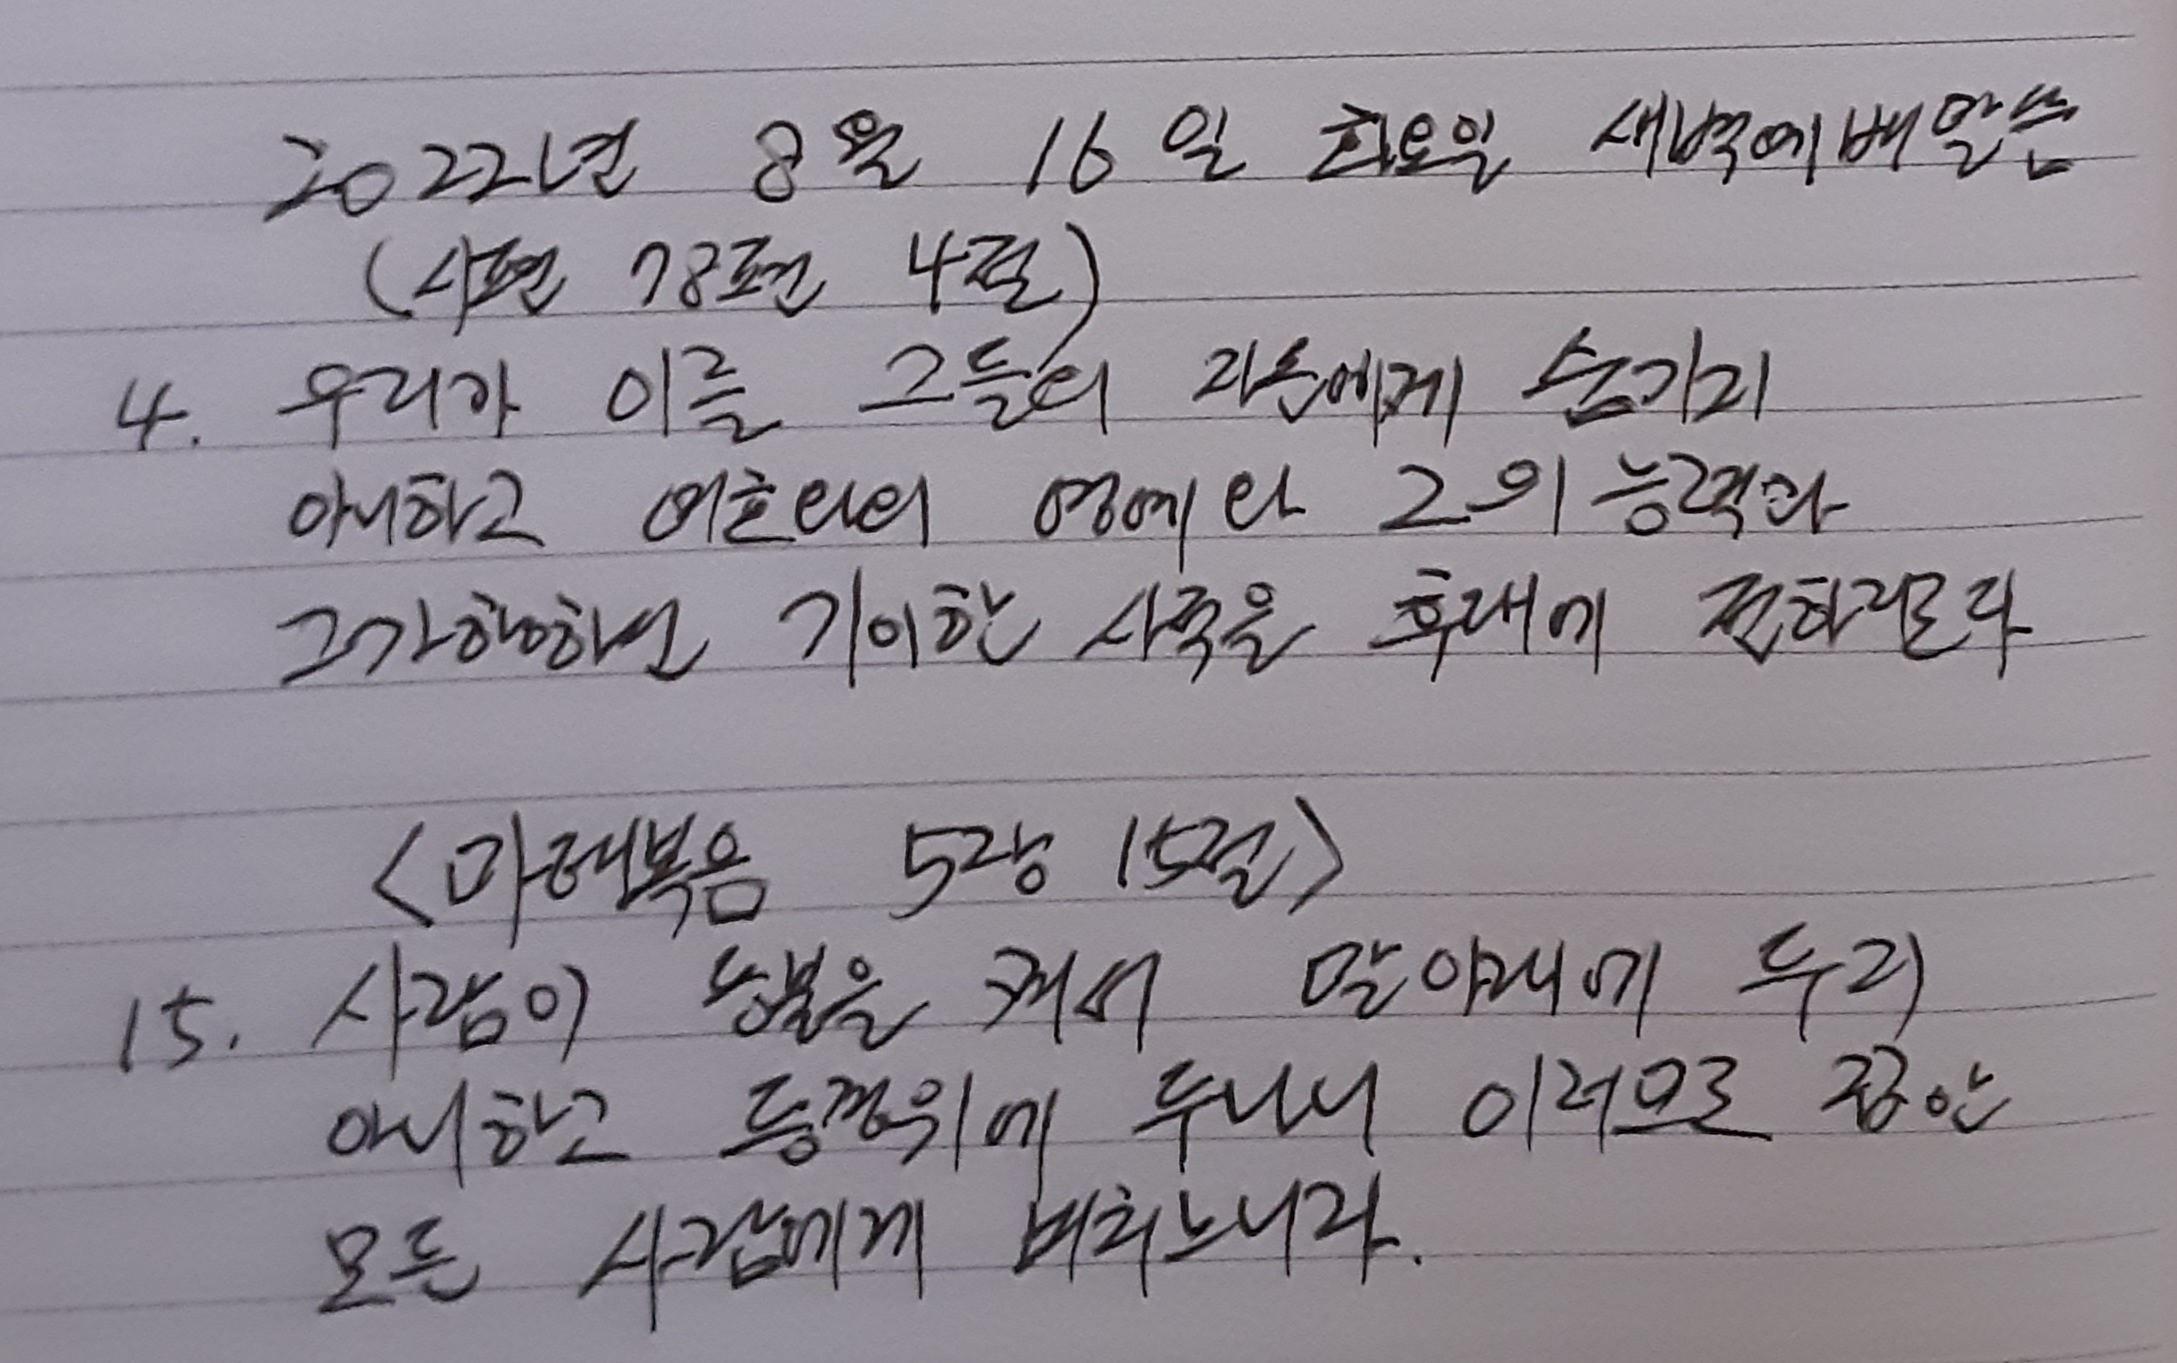 2022년 8월 16일 화요일 새벽예배말씀
(시편 78편 4절)
4. 우리가 이를 그들의 자손에게 숨기지
아니하고 여호와의 영예와 그의 능력과
그가행하신 기이한 사적을 후대에 전하리로다
<마태복음 5장 15절>
15. 사람이 등불을 켜서 말아래에 두지
아니하고 등경위에 두나니 이러므로 집안
모든 사람에게 비취느니라.